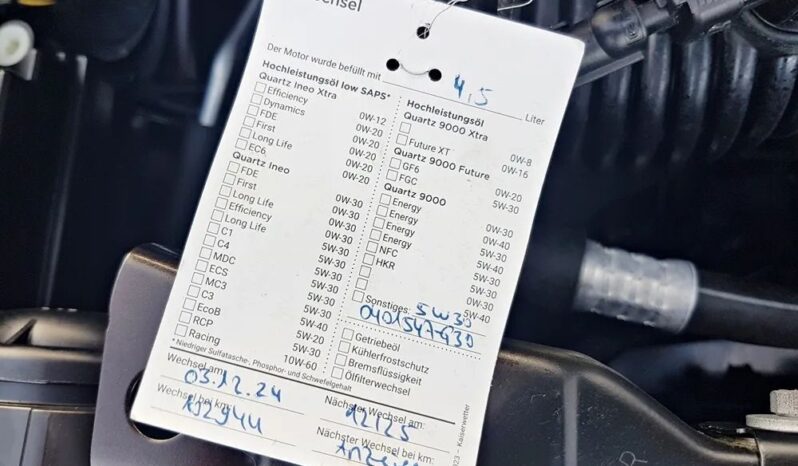 Der Motor wurde befüllt mit 4,5 Liter
Hochleistungsöl low SAPS*
Quartz Ineo Xtra
Efficiency 0W-12
Dynamics 0W-20
FDE 0W-20
First 0W-20
Long Life 0W-20
EC6 0W-20
Quartz Ineo
FDE 0W-30
First 0W-30
Long Life 0W-30
Efficiency 0W-30
Long Life 5W-30
C1 5W-30
C4 5W-30
MDC 5W-30
ECS 5W-30
MC3 5W-30
C3 5W-40
EcoB 5W-20
RCP 5W-30
Racing 10W-60
* Niedriger Sulfatasche-, Phosphor- und Schwefelgehalt
Hochleistungsöl
Quartz 9000 Xtra
0W-8
Future XT 0W-16
Quartz 9000 Future
GF6 0W-20
FGC 5W-30
Quartz 9000
Energy 0W-30
Energy 0W-40
Energy 5W-40
Energy 5W-30
NFC 5W-30
HKR 5W-30
0W-30
5W-40
Sonstiges: 5W30
0401547430
Getriebeöl
Kühlerfrostschutz
Bremsflüssigkeit
Ölfilterwechsel
Wechsel am:
03.12.24
Wechsel bei km:
112944
Nächster Wechsel am:
12/25
Nächster Wechsel bei km:
Kaiserwetter